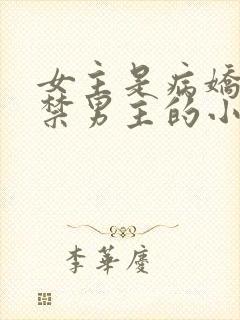 女主是病娇
禁男主的小
李華慶